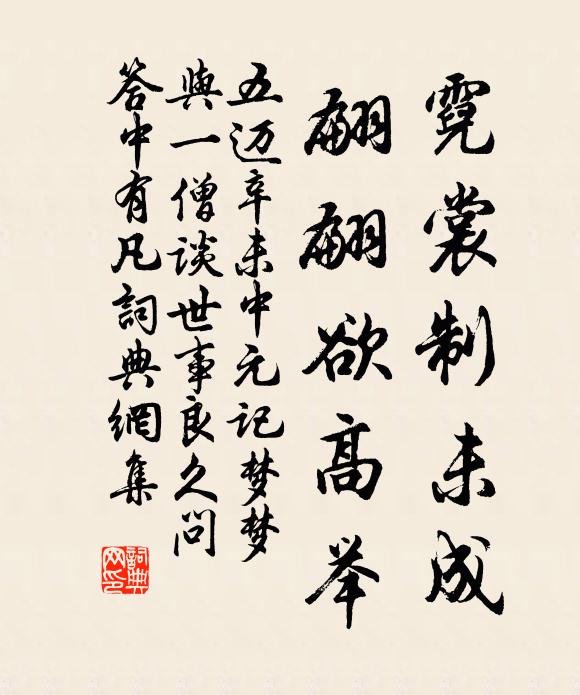 霓裳制未成
翩翩欲高举
五迈辛未中元记梦梦
與一僧談世事良久問
答中有凡詞典網集
詞典
网印